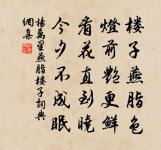 樓子燕脂色
燈前艷更鮮
看花直到曉
今夕不成眠
楊萬里燕脂樓子詞典
網集